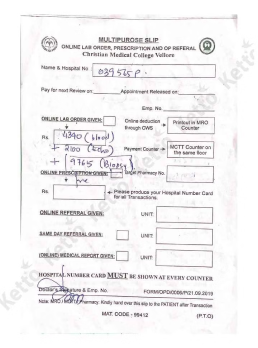 MULTIPURPOSE SLIP
ONLINE LAB ORDER, PRESCRIPTION AND OP REFERAL
Christian Medical College Vellore
Name & Hospital No. 039565P.
Pay for next Review on Appointment Released on
Emp. No.
ONLINE LAB ORDER GIVEN: Online deduction through GWS Printout in MRO Counter
Rs. 4390 (blood)
+ 2100 Payment Counter MCTT Counter on the same floor
+ 9765 (Biopsy)
ONLINE PRESCRIPTION GIVEN: Pharmacy No.
Rs. Please produce your Hospital Number Card for all Transactions.
ONLINE REFERRAL GIVEN: UNIT:
SAME DAY REFERRAL GIVEN: UNIT:
(ONLINE) MEDICAL REPORT GIVEN: UNIT:
HOSPITAL NUMBER CARD MUST BE SHOWN AT EVERY COUNTER
Doctor's Signature & Emp. No. FORM/OPD/0006/P/21.09.2019
Note: MRO / Pharmacy: Kindly hand over this slip to the PATIENT after Transaction
MAT. CODE - 99412 (P.T.O)
Ketto
Ketto
Ketto
Ketto